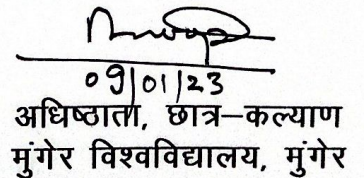 09/01/23
अधिष्ठाता, छात्र-कल्याण
मुंगेर विश्वविद्यालय, मुंगेर